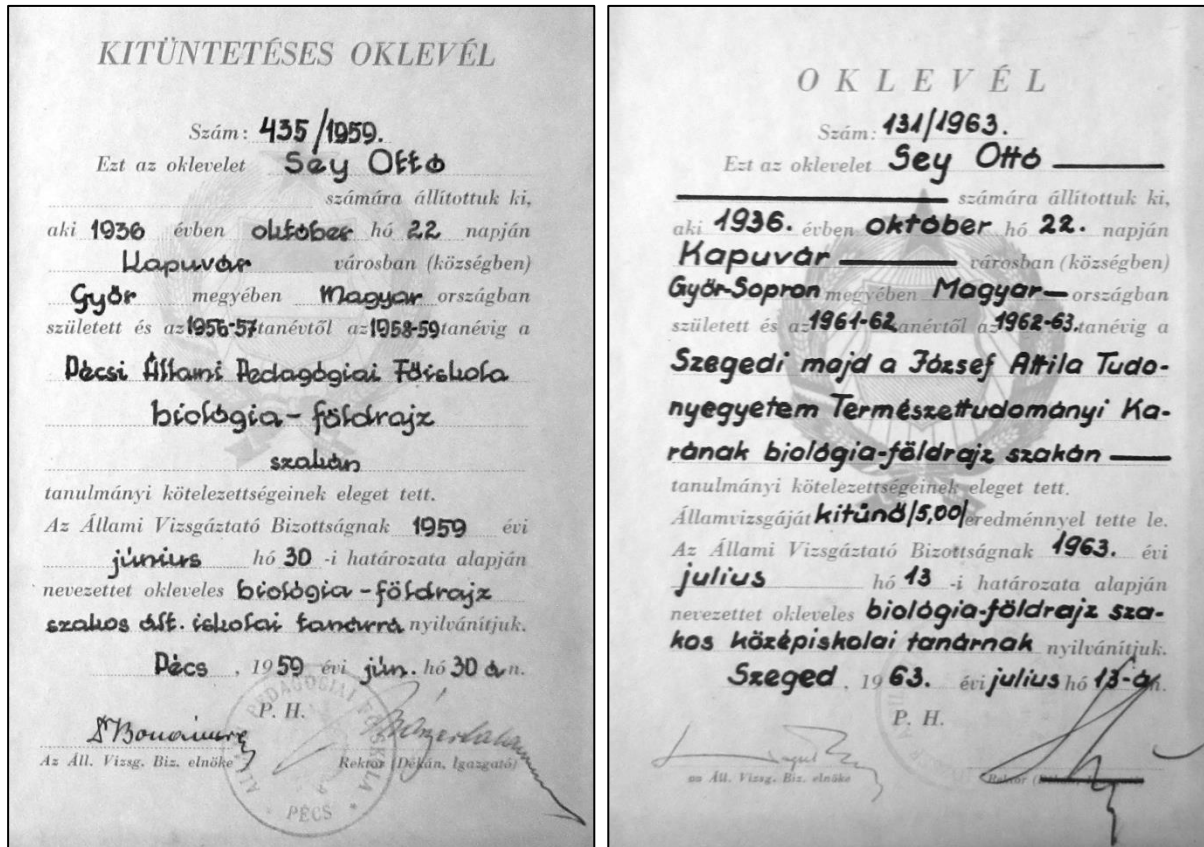 KITÜNTETÉSES OKLEVÉL
Szám: 435/1959.
Ezt az oklevelet Sey Ottó
számára állítottuk ki,
aki 1936 évben október hó 22 napján
Kapuvár városban (községben)
Győr megyében Magyar országban
született és az 1956-57 tanévtől az 1958-59 tanévig a
Pécsi Állami Pedagógiai Főiskola
biológia-földrajz
szakán
tanulmányi kötelezettségeinek eleget tett.
Az Állami Vizsgáztató Bizottságnak 1959 évi
június hó 30 -i határozata alapján
nevezettet okleveles biológia-földrajz
szakos ált. iskolai tanárrá nyilvánítjuk.
Pécs, 1959 évi jún. hó 30 án.
P. H.
Az Áll. Vizsg. Biz. elnöke
Rektor (Dékán, Igazgató)
PÉCS
OKLEVÉL
Szám: 131/1963.
Ezt az oklevelet Sey Ottó
számára állítottuk ki,
aki 1936. évben október hó 22. napján
Kapuvár városban (községben)
Győr-Sopron megyében Magyar országban
született és az 1961-62 tanévtől az 1962-63. tanévig a
Szegedi majd a József Attila Tudo-
nyegyetem Természettudományi Ka-
rának biológia-földrajz szakán
tanulmányi kötelezettségeinek eleget tett.
Államvizsgáját kitünő/5,00/ eredménnyel tette le.
Az Állami Vizsgáztató Bizottságnak 1963. évi
julius hó 13 -i határozata alapján
nevezettet okleveles biológia-földrajz sza-
kos középiskolai tanárnak nyilvánítjuk.
Szeged, 1963. évi julius hó 13-án.
P. H.
az Áll. Vizsg. Biz. elnöke
Rektor